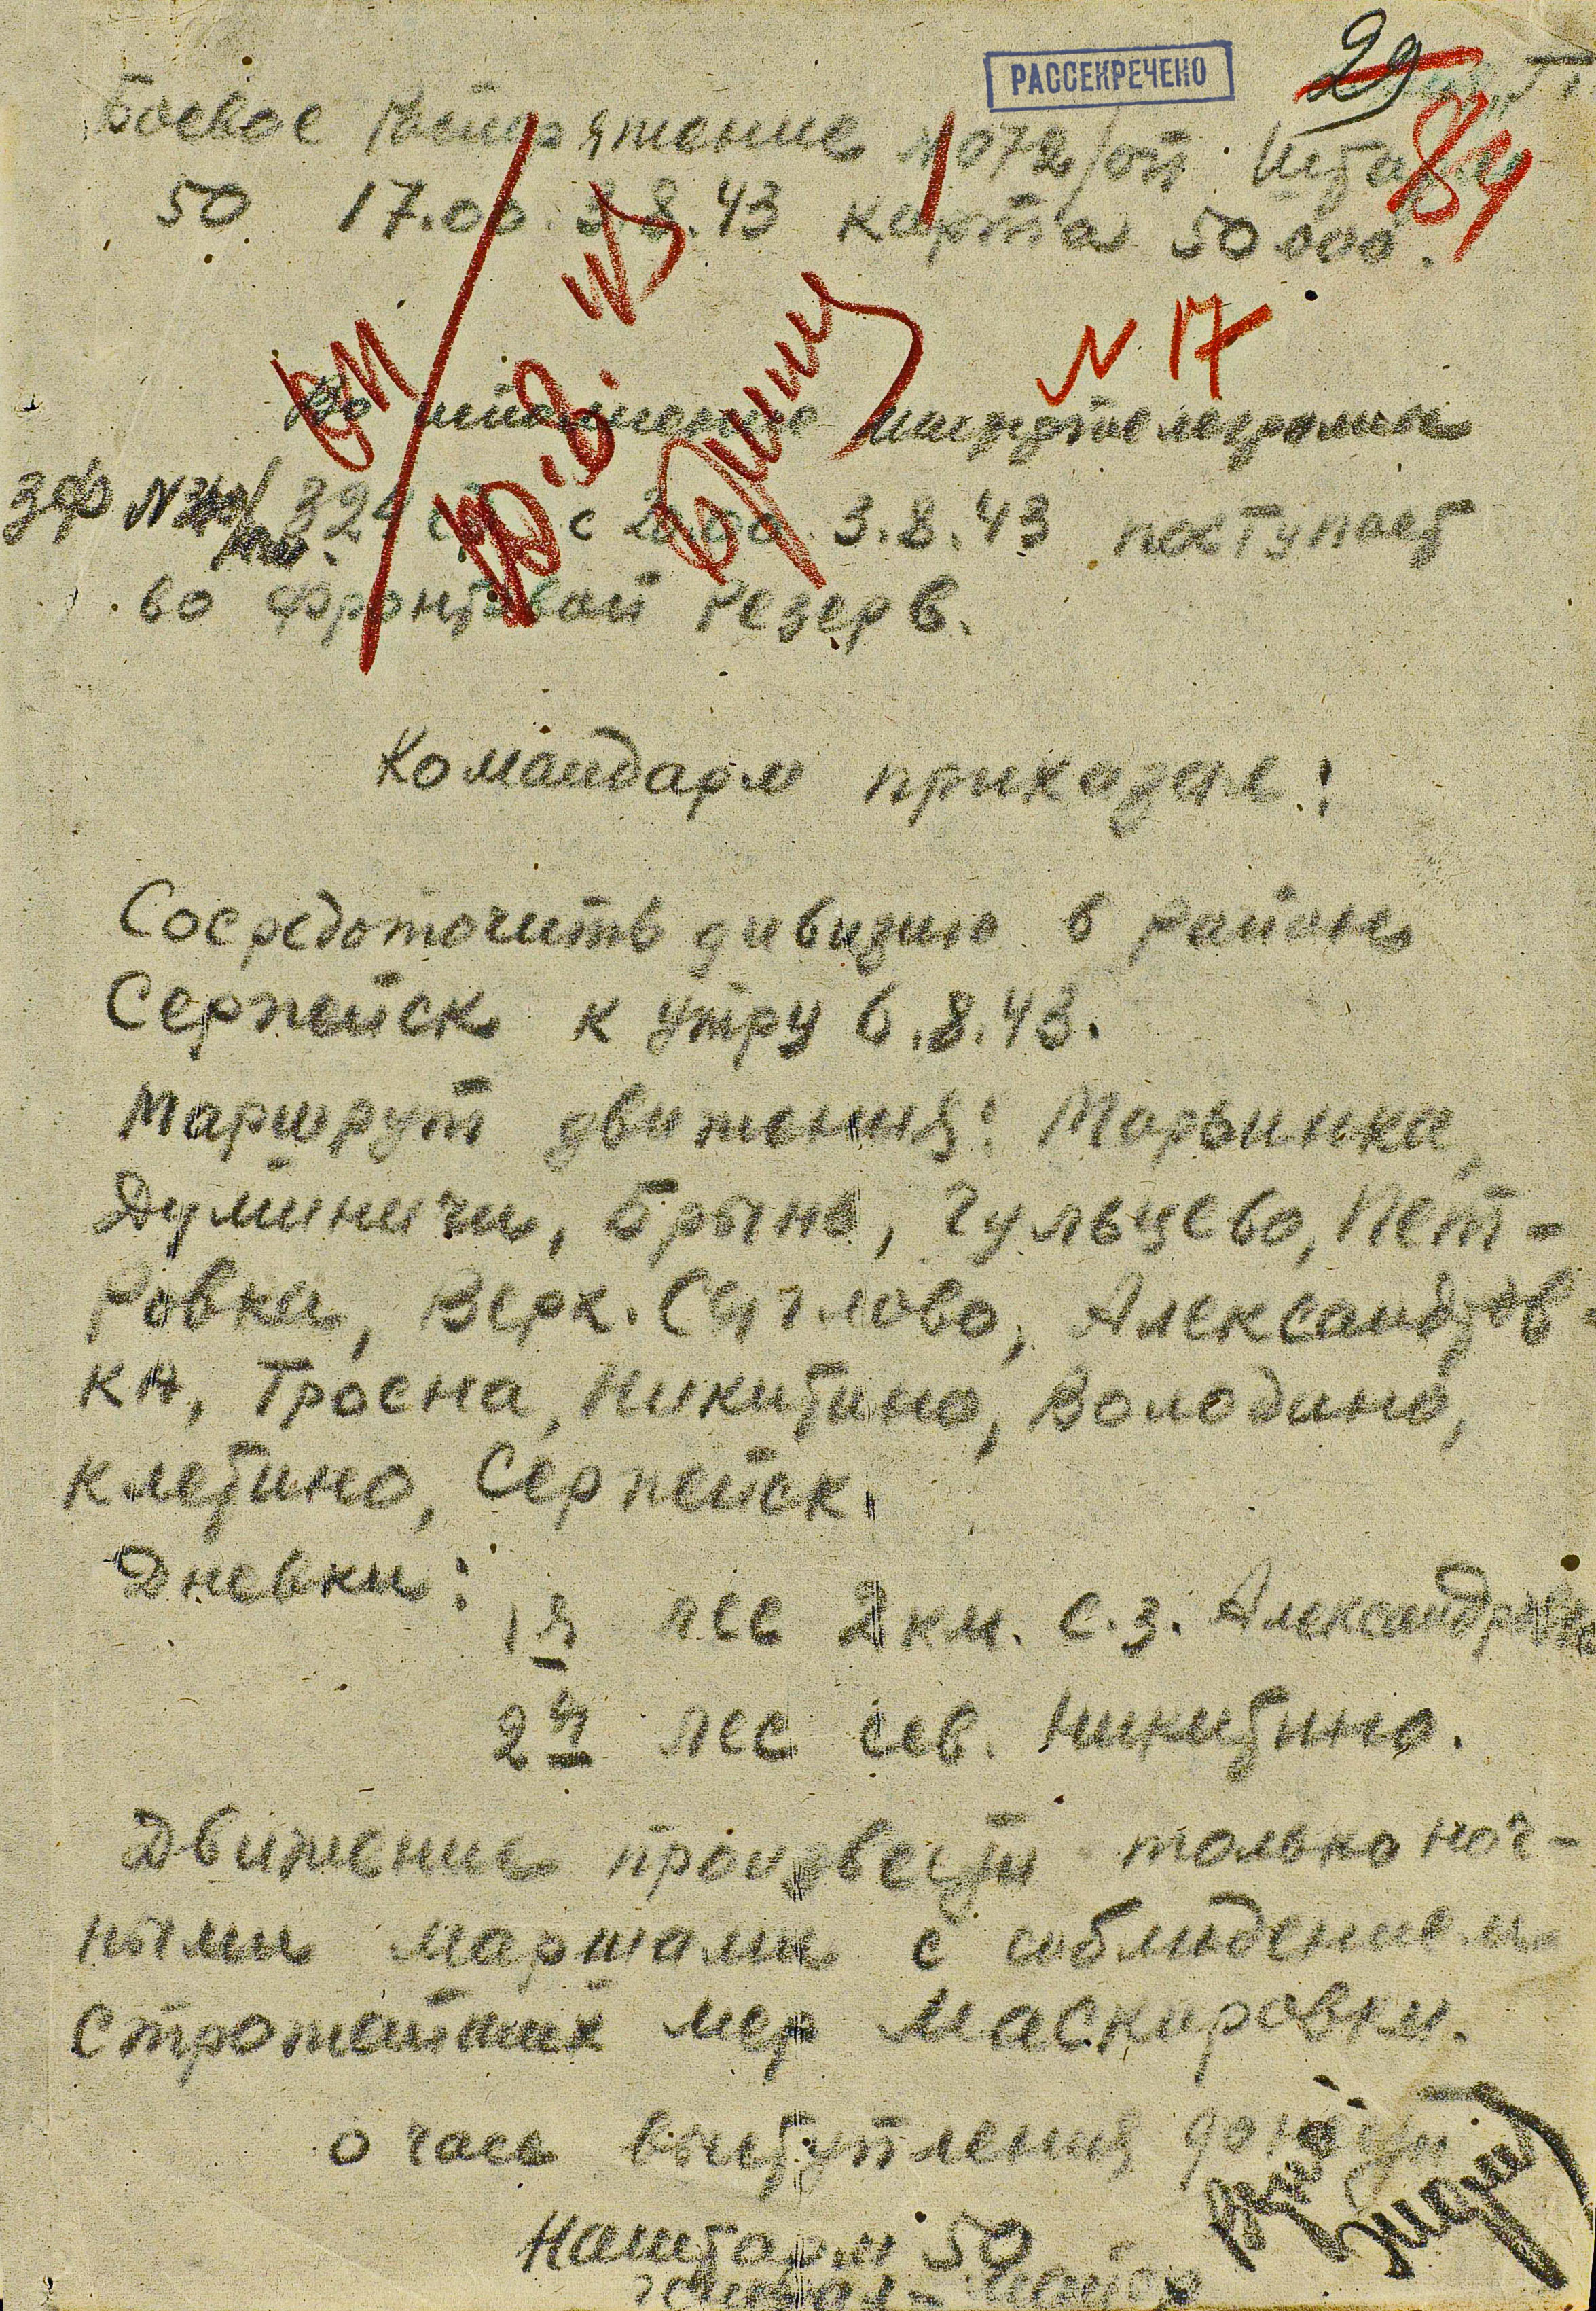 РАССЕКРЕЧЕНО
29
84
Боевое распоряжение № 072/оп Штарм
50 17.00 3.8.43 карта 50 000.
№ 17
Во исполнение шифртелеграммы
ЗФ № 324 сд с 20.00 3.8.43 поступает
во фронтовой резерв.
Командарм приказал:
Сосредоточить дивизию в районе
Серпейск к утру 6.8.43.
Маршрут движения: Марьинка,
Думиничи, Брынь, Гульцево, Пет-
ровка, Верх. Сяглово, Александров-
ка, Тросна, Никитино, Володино,
Клетино, Серпейск.
Дневки:
1я лес 2 км. с.з. Александровка
2я лес сев. Никитино.
Движение произвести только ноч-
ными маршами с соблюдением
строжайших мер маскировки.
О часе выступления донести
Наштарм 50
генерал-майор